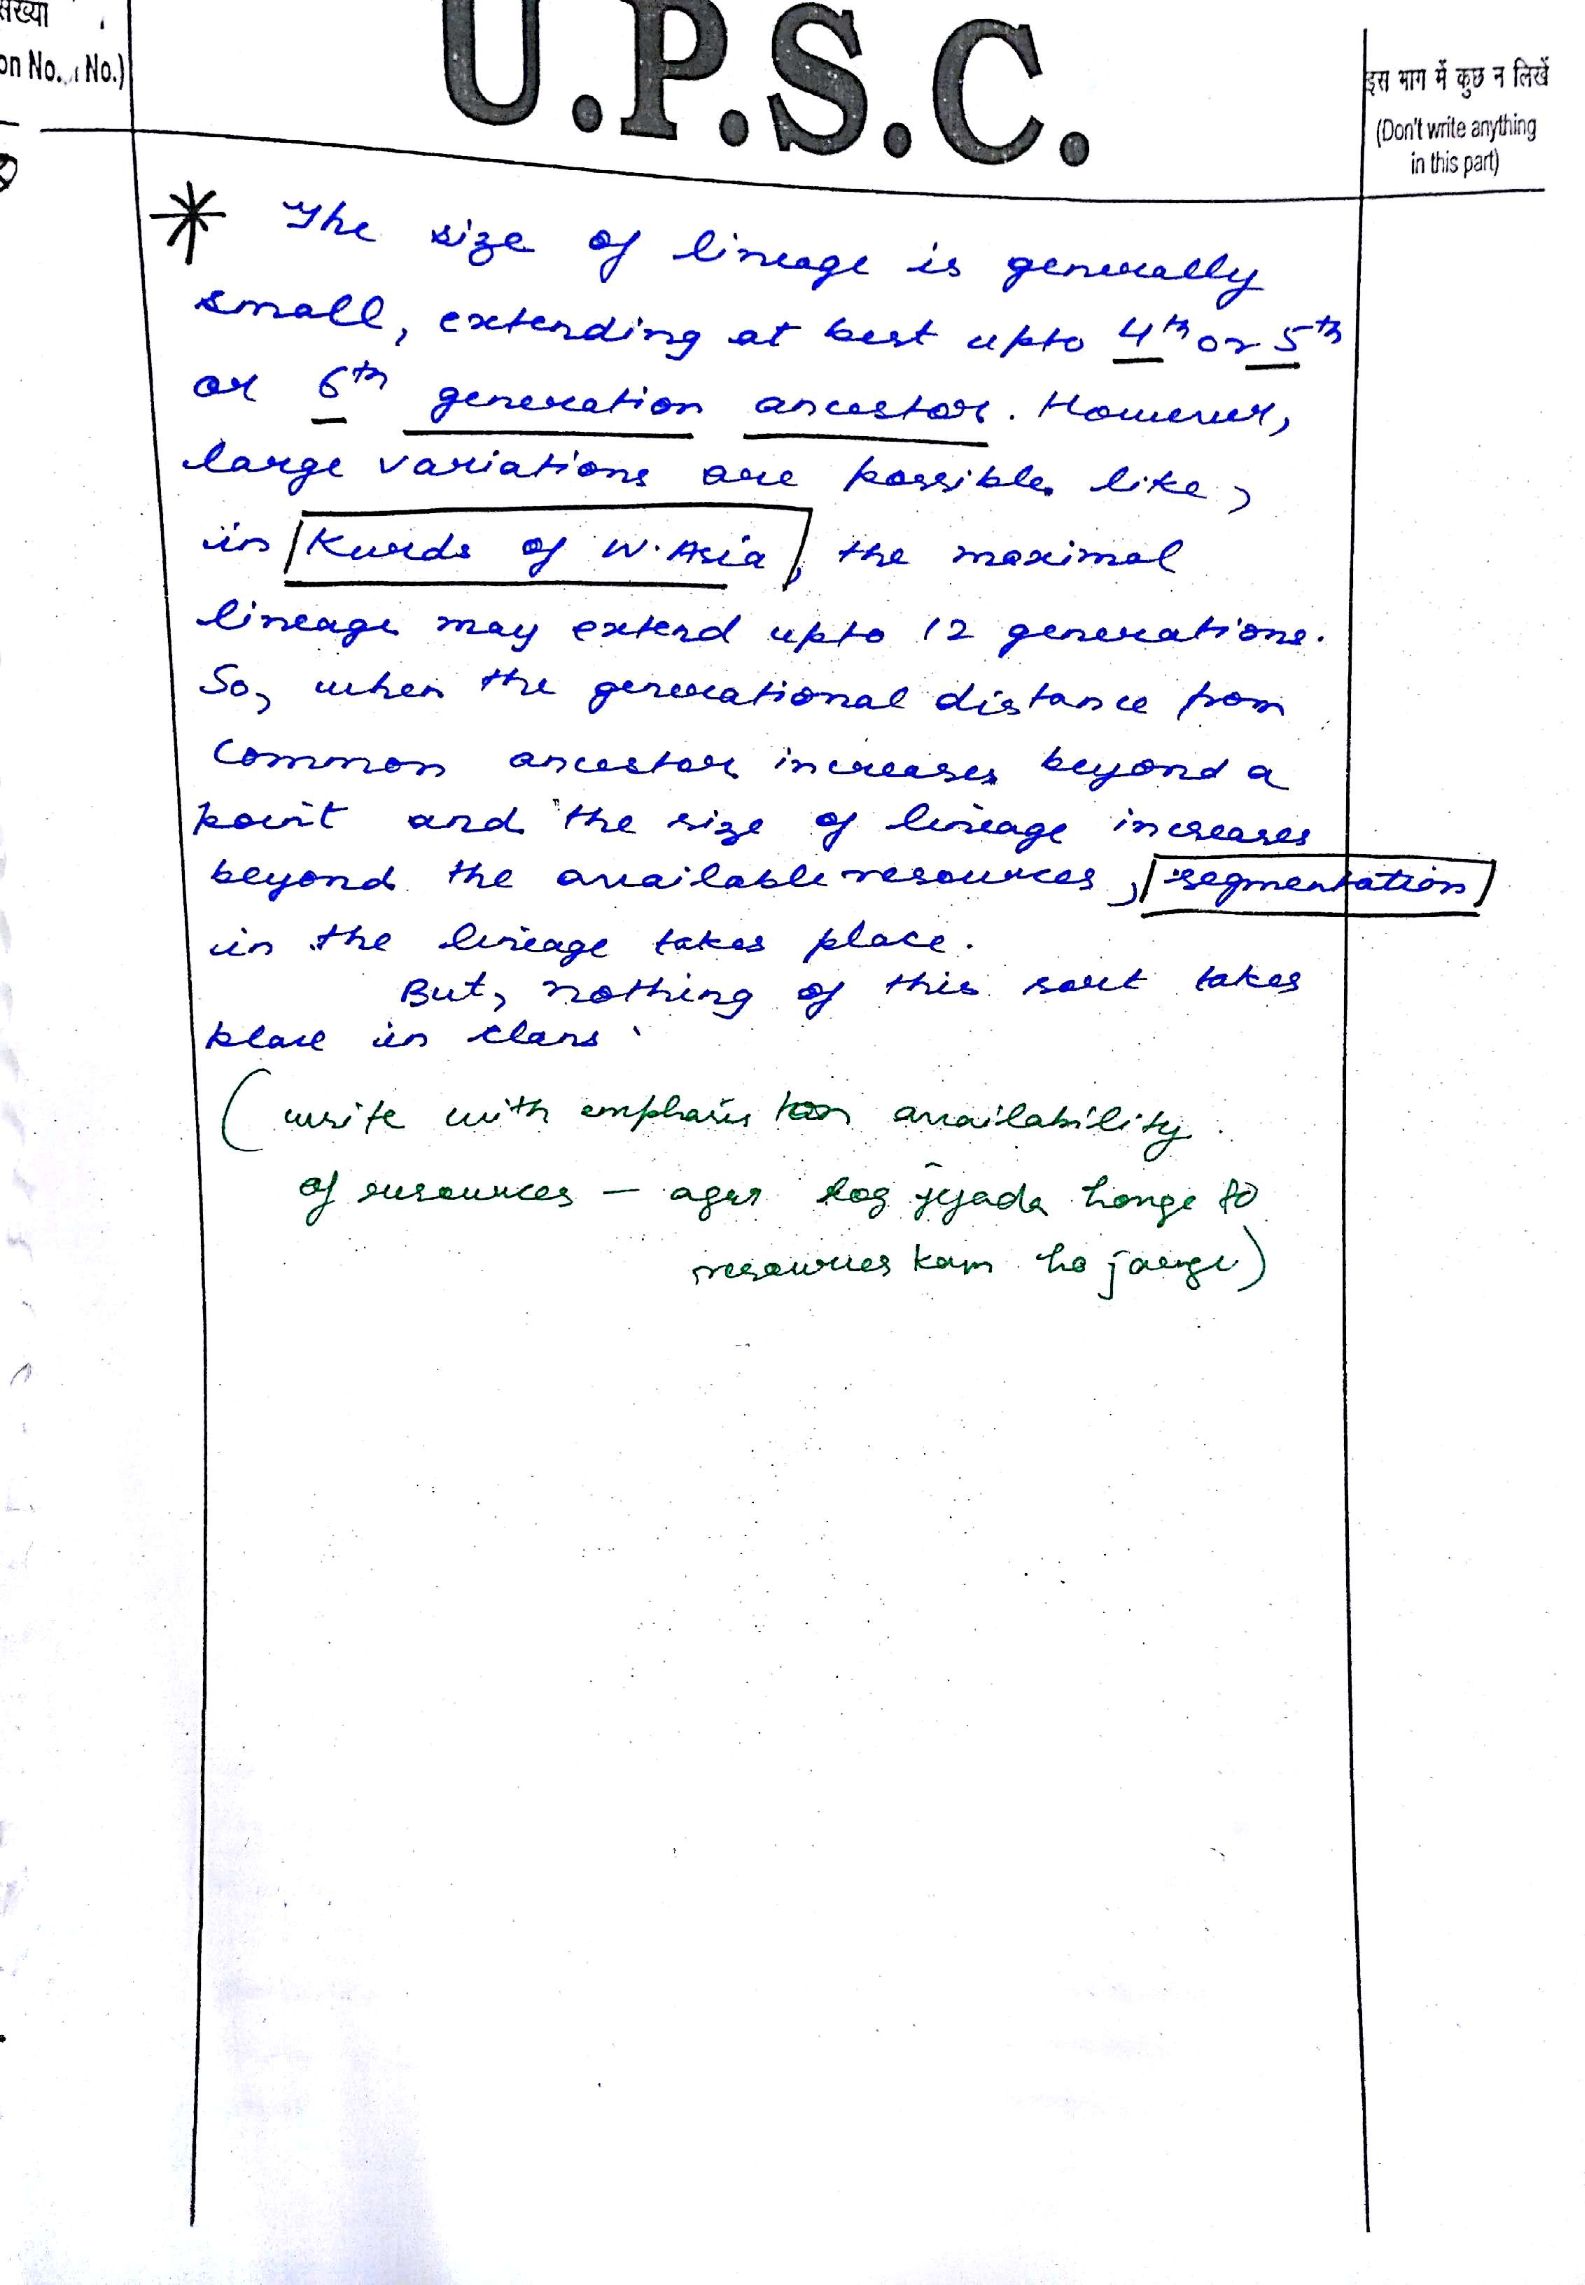 संख्या
on No. No.)
U.P.S.C.
इस भाग में कुछ न लिखें
(Don't write anything
in this part)
* The size of lineage is generally
small, extending at best upto 4th or 5th
or 6th generation ancestor. However,
large variations are possible like,
in Kurds of W. Asia, the maximal
lineage may extend upto 12 generations.
So, when the generational distance from
common ancestor increases beyond a
point and the size of lineage increases
beyond the available resources, segmentation
in the lineage takes place.
But, nothing of this sort takes
place in clans.
(write with emphasis on availability
of resources – agar log jyada honge to
resources kam ho jaenge)